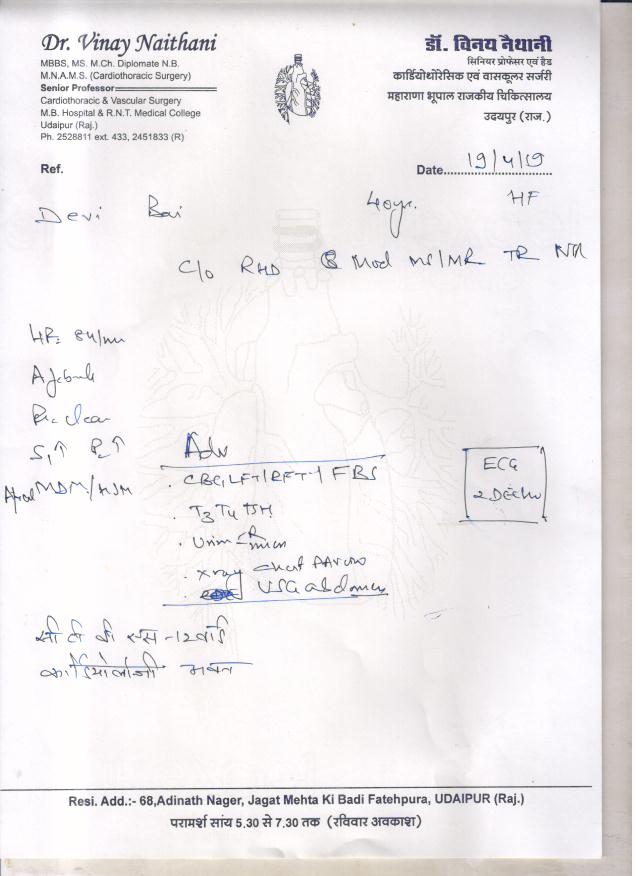 Dr. Vinay Naithani
MBBS, MS. M.Ch. Diplomate N.B.
M.N.A.M.S. (Cardiothoracic Surgery)
Senior Professor
Cardiothoracic & Vascular Surgery
M.B. Hospital & R.N.T. Medical College
Udaipur (Raj.)
Ph. 2528811 ext. 433, 2451833 (R)
डॉ. विनय नैथानी
सिनियर प्रोफेसर एवं हैड
कार्डियोथोरेसिक एवं वासकूलर सर्जरी
महाराणा भूपाल राजकीय चिकित्सालय
उदयपुर (राज.)
Ref.
Date 19/4/19
Devi Bai 40yr. HF
C/o RHD Mod MS/MR TR
HR: 84/mn
Afebrile
R: clear
S1↑ P2↑
MDM/
Adv
. CBC, LFT/RFT/ FBS
. T3 T4 TSH
. Urine
. xray chest PA view
. USG abdomen
ECG
2D Echo
कार्डियोलोजी भवन
Resi. Add.:- 68,Adinath Nager, Jagat Mehta Ki Badi Fatehpura, UDAIPUR (Raj.)
परामर्श सांय 5.30 से 7.30 तक (रविवार अवकाश)